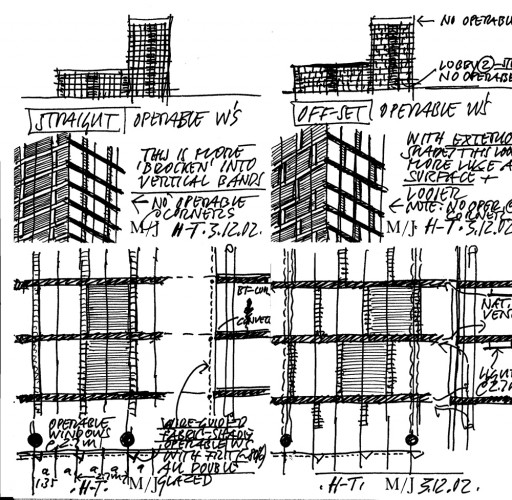 ← NO OPERABLE
LOBBY (2)-
NO OPERABLE
STRAIGHT OPERABLE W'S
OFF-SET OPERABLE W'S
THIS IS MORE
'BROCKEN' INTO
VERTICAL BANDS
← NO OPERABLE
CORNERS
M/J H-T. 3.12.02.
WITH EXTERIO
MORE LIKE A
SURFACE +
← NOTE: NO OPER
CORNERS
M/J H-T. 3.12.02.
NAT.
VEN
LIGHT
OPERABLE
WINDOWS
WIRE GUIDED
FABRIC SHADE
OPERABLE W'S
ALL DOUBLE
GLAZED
a a a a
1.35
.H-T. M/J
.H-T. M/J 3.12.02.